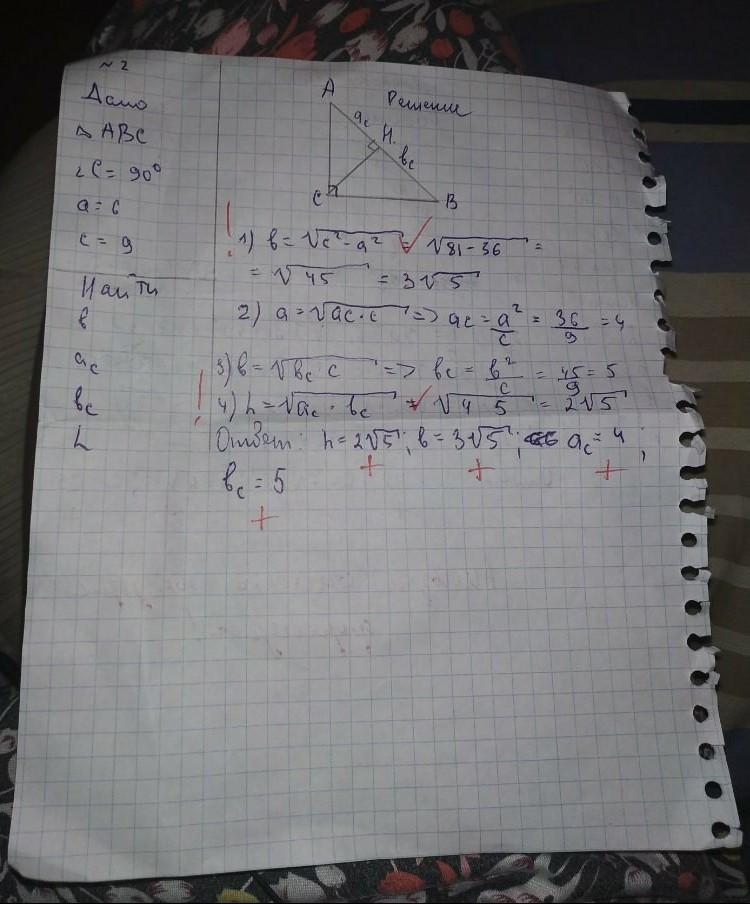 №2
Дано
△ ABC
∠C = 90°
a = 6
c = 9
Найти
в
a_c
в_c
h
Решение
A
a_c
H
в_c
C
B
1) в = √c² - a² = √81 - 36 =
= √45 = 3√5
2) a = √ac · c => ac = a²/c = 36/9 = 4
3) в = √в_c c => в_c = в²/c = 45/9 = 5
4) h = √a_c · в_c = √4 5 = 2√5
Ответ: h = 2√5; в = 3√5; a_c = 4;
+ + +
в_c = 5
+